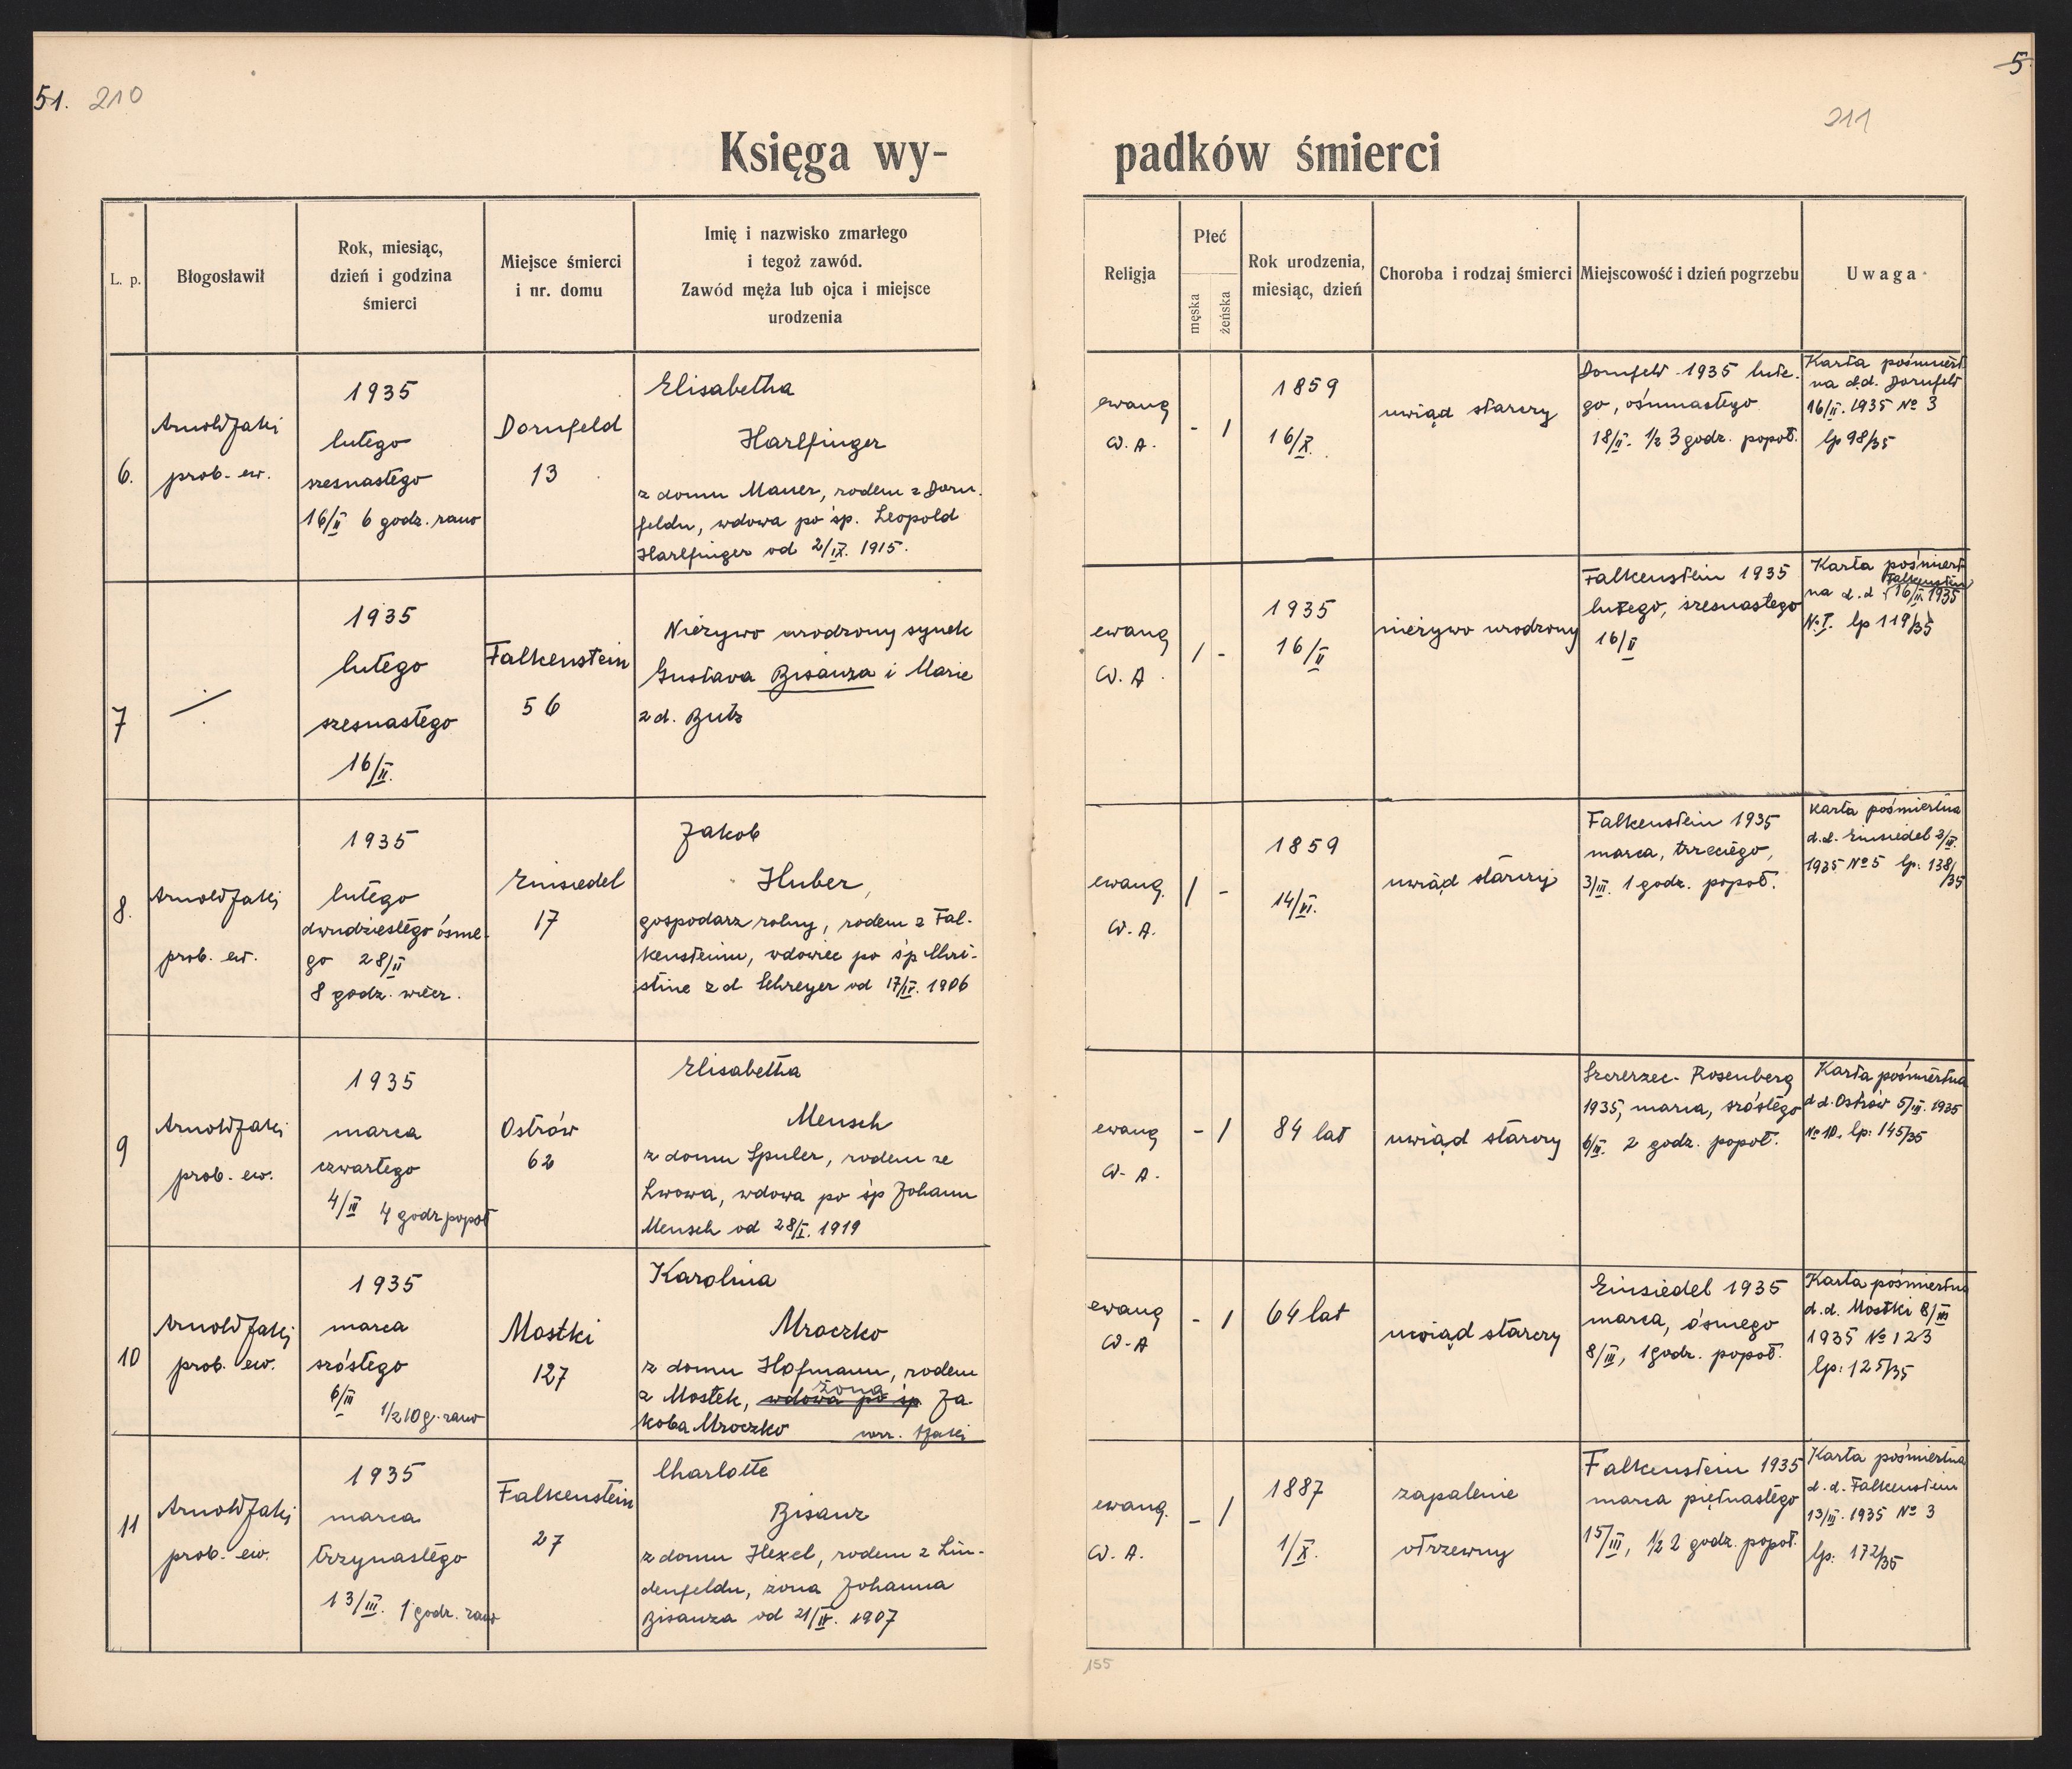 51. 210
5
211
Księga wy-
padków śmierci
L. p.
Błogosławił
Rok, miesiąc,
dzień i godzina
śmierci
Miejsce śmierci
i nr. domu
Imię i nazwisko zmarłego
i tegoż zawód.
Zawód męża lub ojca i miejsce
urodzenia
Religja
Płeć
męska
żeńska
Rok urodzenia,
miesiąc, dzień
Choroba i rodzaj śmierci
Miejscowość i dzień pogrzebu
Uwaga
6.
Arnold Jaki
prob. ew.
1935
lutego
szesnastego
16/II 6 godz. rano
Dornfeld
13
Elisabetha
Harlfinger
z domu Mauer, rodem z Dorn.
feldu, wdowa po śp. Leopold
Harlfinger od 2/IX. 1915.
ewang
W. A.
- 1
1859
16/X.
uwiąd starczy
Dornfeld 1935 lute.
go, ósmnastego
18/II. 1/2 3 godz. popoł.
Karta pośmiert
na d.d. Dornfeld
16/II. 1935 № 3
lp 98/35
7
1935
lutego
szesnastego
16/II.
Falkenstein
56
Nieżywo urodzony synek
Gustava Bisanza i Marie
z d. Butz
ewang
W. A.
1 -
1935
16/II
nieżywo urodzony
Falkenstein 1935
lutego, szesnastego
16/II
Karta pośmiert
Falkenstein
na d.d 16/II. 1935
№ I. lp 119/35
8.
Arnold Jaki
prob. ew.
1935
lutego
dwudziestego ósme-
go 28/II
8 godz. wiecz.
Einsiedel
17
Jakob
Huber,
gospodarz rolny, rodem z Fal-
kensteinu, wdowiec po śp Chri-
stine z d Schreyer od 17/IV. 1906
ewang.
W. A.
1 -
1859
14/VI.
uwiąd starczy
Falkenstein 1935
marca, trzeciego,
3/III. 1 godz. popoł.
Karta pośmiertna
d.d. Einsiedel 2/III.
1935 № 5 lp: 138/
/35
9
Arnold Jaki
prob. ew.
1935
marca
czwartego
4/III 4 godz popoł
Ostrów
62
Elisabetha
Mensch
z domu Spuler, rodem ze
Lwowa, wdowa po śp Johann
Mensch od 28/I. 1919
ewang
W. A.
- 1
84 lat
uwiąd starczy
Szczerzec-Rosenberg
1935, marca, szóstego
6/III. 2 godz. popoł.
Karta pośmiertna
d d. Ostrów 5/III. 1935
№ 10. lp: 145/35
10
Arnold Jaki
prob. ew.
1935
marca
szóstego
6/III 1/2 10 g. rano
Mostki
127
Karolina
Mroczko
z domu Hofmann, rodem
żona
z Mostek, wdowa po śp. Ja-
koba Mroczko
ewang
W. A
- 1
64 lat
uwiąd starczy
Einsiedel 1935
marca, ósmego
8/III, 1 godz. popoł.
Karta pośmiertna
d.d. Mostki 8/III
1935 № 123
lp: 125/35
11
Arnold Jaki
prob. ew.
1935
marca
trzynastego
13/III. 1 godz. rano
Falkenstein
27
Charlotte
Bisanz
z domu Hexel, rodem z Lin-
denfeldu, żona Johanna
Bisanza od 21/IV. 1907
ewang.
W. A.
- 1
1887
1/X.
zapalenie
otrzewny
Falkenstein 1935
marca piętnastego
15/III, 1/2 2 godz. popoł.
Karta pośmiertna
d.d. Falkenstein
13/III. 1935 № 3
lp: 172/35
155